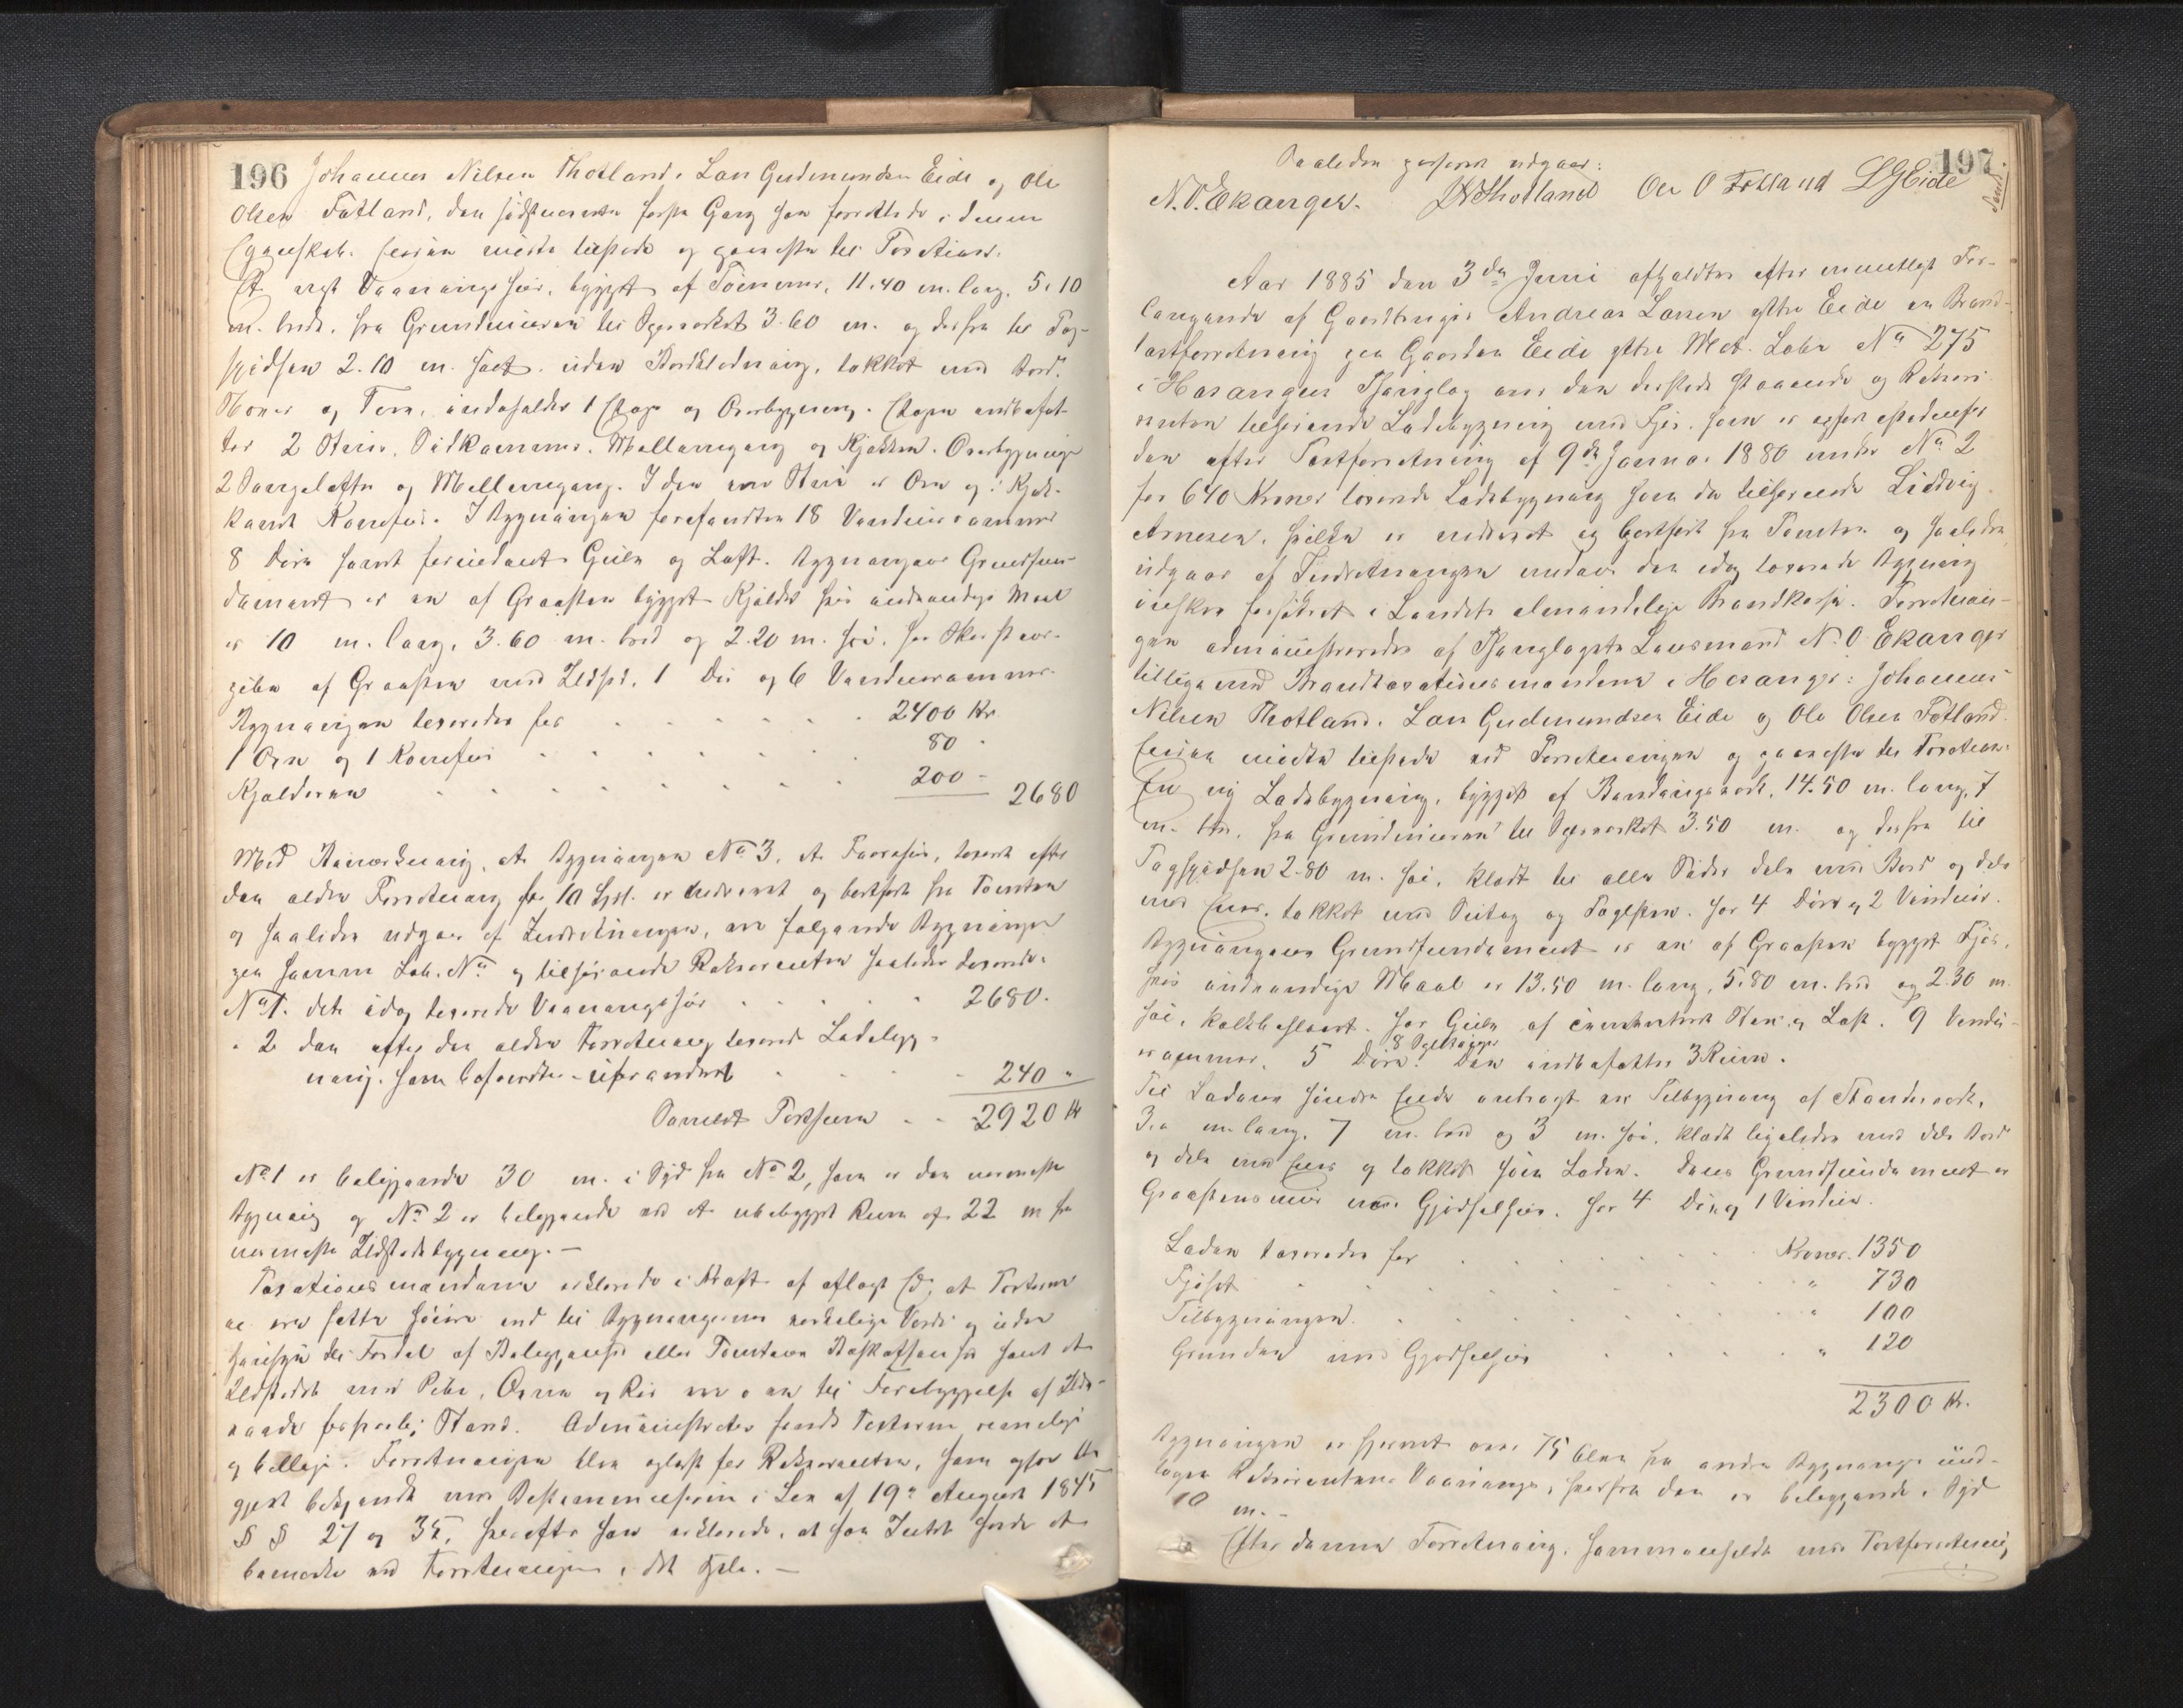 196 Johannes Nilsen Thotland, Lars Gudmundsen Eide og Ole
Olsen Fotland, den sidstnævnte første Gang som forrettede i denne
Egenskab. Eieren mødte tilstede og gaves til Taxation.
Et nyt Vaaningshuus, bygget af Tømmer, 11.40 m. lang, 5.10
m. bred, fra Grundmuren til Tagskægget 3.60 m. og derfra til Tag-
spidsen 2.10 m. høit, uden Bordklædning, takket med Bord,
Næver og Torv, indeholder 1 Etage og Overbygning. Etagen indbefat-
ter 2 Stuer, Sidkammer, Mellemgang og Kjøkken. Overbygningen
2 Sengelofte og Mellemgang. I den ene Stue er Ovn og i Kjøk-
kenet Komfur. I Bygningen forefandtes 18 Vinduesrammer
8 Døre samt fornødent Gulv og Loft. Bygningens Grundfun-
dament er en af Graasten bygget Kjelder hvis indvendige Maal
er 10 m. lang, 3.60 m. bred og 2.20 m. høi. Har Skorstens-
pibe af Graasten med Ildsted, 1 Dør og 6 Vinduesrammer.
Bygningen taxeredes for 2400 Kr.
1 Ovn og 1 Komfur 80 "
Kjelderen 200 " 2680
Med Bemærkning, at Bygningen No 3, et, taxeret efter
den ældre Forretning for 10 Spd. er nedrevet og bortført fra Tomten
og saaledes udgaar af Indretningen, ere følgende Bygninger
paa samme Løb. No og tilhørende Rekvirenten saaledes taxerede:
No 1. det idag taxerede Vaaningshuus 2680.
" 2 den efter den ældre Forretning taxerede Ladebyg-
ning, som befandtes uforandret 240 "
Samlet Taxtsum 2920 Kr
No 1 er beliggende 30 m. i Syd fra No 2, som er den nærmeste
Bygning og No 2 er beliggende ved et ubebygget Rum af 22 m fra
nærmeste Ildstedsbygning. —
Taxationsmændene erklærede i Kraft af aflagt Ed, at Taxterne
ei ere satte høiere end til Bygningernes virkelige Værdi og uden
Hensyn til Fordel af Beliggenhed eller Tomtens Beskaffenhed samt at
Ildstedet med Pibe, Ovne og Rør var i en til Forebyggelse af Ilds-
vaade forsvarlig Stand. Administrator fandt Taxterne rimelige
og billige. Forretningen blev oplæst for Rekvirenten, som ogsaa blev
gjort bekjendt med Bestemmelserne i Lov af 19de August 1845
§ § 27 og 35, hvorefter han erklærede, at han Intet havde at
bemærke ved Forretningen i det Hele. —
197
Saaledes passeret udgaar:
N. O. Ekanger. J N Thotland Ole O Fotland L G Eide
Aar 1885 den 3de Juni afholdtes efter mundtligt For-
langende af Gaardbruger Andreas Larsen ytre Eide en Brand-
taxtforretning paa Gaarden Eide ytre Mat. Løbe No 275
i Hosanger Thinglag over den dersteds staaende og Rekvi-
renten tilhørende Ladebygning med Fjøs, som er opført istedetfor
den efter Taxtforretning af 9de Januar 1880 under No 2
for 640 Kroner taxerede Ladebygning som da tilhørende Ludvig
Arnesen, hvilken er nedrevet og bortført fra Tomten og saaledes
udgaar af Indretningen medens den idag taxerede Bygning
ønskes forsikret i Landets almindelige Brandkasse. Forretnin-
gen administreredes af Thinglagets Lensmand N. O. Ekanger
tilligemed Brandtaxationsmændene i Hosanger: Johannes
Nilsen Thotland, Lars Gudmundsen Eide og Ole Olsen Fotland.
Eieren mødte tilstede ved Forretningen og gaves til Taxation:
En ny Ladebygning, bygget af Bindingsværk, 14.50 m. lang, 7
m. br., fra Grundmuren til Tagskægget 3.50 m. og derfra til
Tagspidsen 2.80 m. høi, klædt til alle Sider dels med Bord og dels
med, takket med og Taglsten. Har 4 Døre og 2 Vinduer.
Bygningens Grundfundament er en af Graasten bygget Fjøs,
hvis indvendige Maal er 13.50 m. lang, 5.80 m. bred og 2.30 m.
høi, kalkbeslaaet. Har Gulv af Sten og Loft. 9 Vindu-
esrammer, 5 Døre. Den indbefatter 3 Rum.
Til Ladens søndre Ende anbragt en Tilbygning af Standværk,
3.0 m. lang, 7 m. bred og 3 m. høi, klædt ligeledes med dels Bord
og dels med og takket som Laden. Dens Grundfundament er
Graastensmuur med Gjødselhuus. Har 4 Døre og 1 Vindue.
Laden taxeredes for Kroner 1350
Fjøset " 730
Tilbygningen " 100
Grunden med Gjødselhuus " 120
2300 Kr.
Bygningen er fjernet over 75 Alen fra andre Bygninger und-
tagen Rekvirentens Vaaningshuus, hvorfra den er beliggende i Syd
10 m. -
Efter denne Forretning, sammenholdt med Taxtforretning